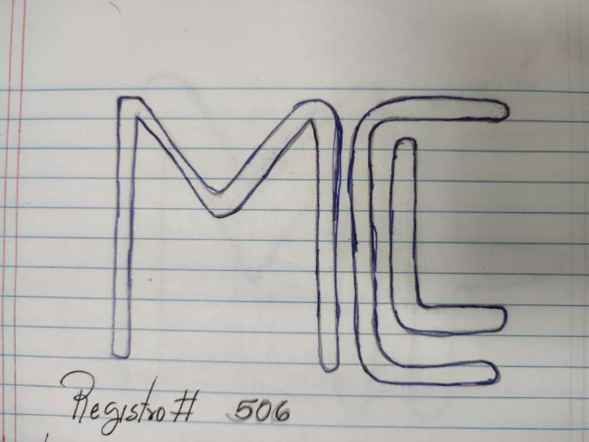 MCL
Registro # 506